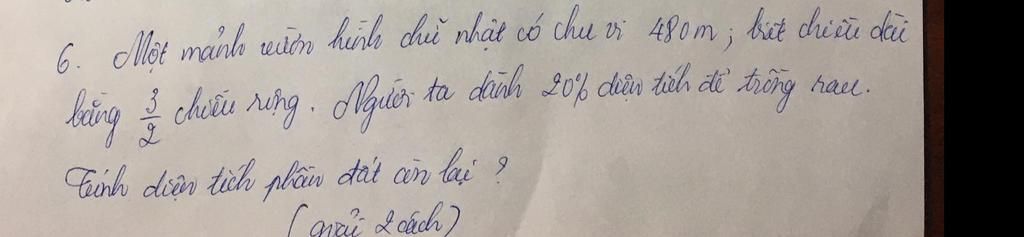 6. Một mảnh vườn hình chữ nhật có chu vi 480m; biết chiều dài
bằng 3/2 chiều rộng. Người ta dành 20% diện tích để trồng rau.
Tính diện tích phần đất còn lại?
(giải 2 cách)